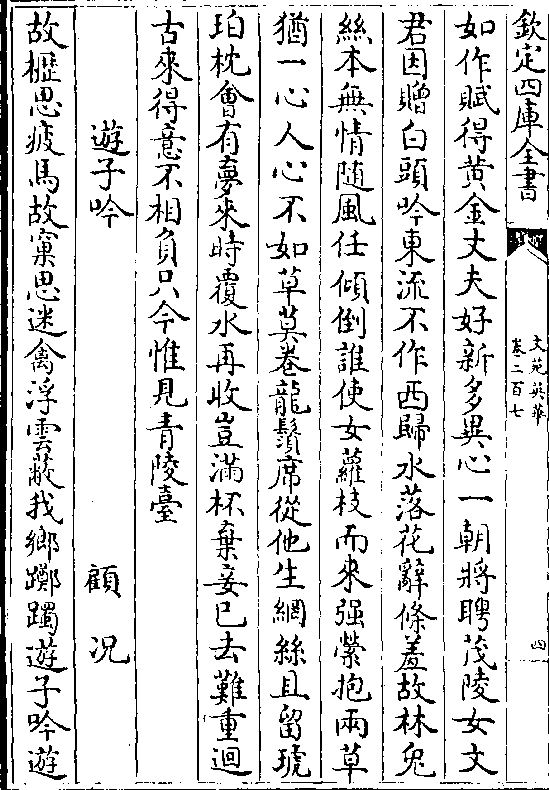 欽定四庫全書
文苑英華
卷二百七
四
如作賦得黃金丈夫好新多異心一朝將聘茂陵女文
君因贈白頭吟東流不作西歸水落花辭條羞故林兔
絲本無情随風任傾倒誰使女蘿枝而來强縈抱兩草
猶一心人心不如草莫卷龍鬚席從他生網絲且留琥
珀枕會有夢來時覆水再收豈滿杯棄妾已去難重迴
古來得意不相負只今惟見青陵臺
遊子吟 顧况
故櫪思疲馬故窠思迷禽浮雲蔽我鄉躑躅遊子吟遊